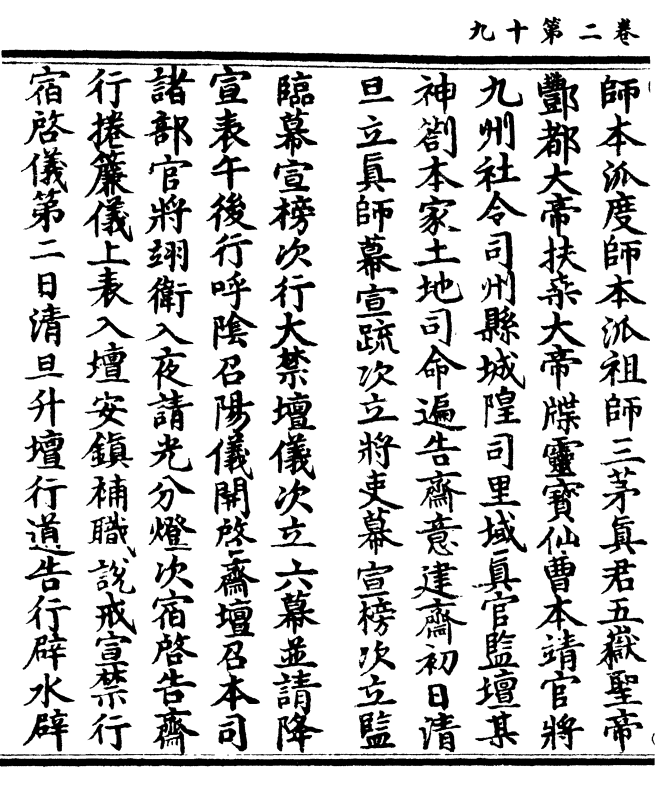 卷二第十九
師本派度師本派祖師三茅眞君五嶽聖帝
酆都大帝扶桒大帝牒靈寶仙曹本靖官將
九州社令司州縣城隍司里域眞官監壇某
神劄本家土地司命遍告齋意建齋初日清
旦立眞師幕宣䟽次立將吏幕宣榜次立監
臨幕宣榜次行大禁壇儀次立六幕並請降
宣表午後行呼陰召陽儀開啓齋壇召本司
諸部官將翊衛入夜請光分燈次宿啓告齋
行捲簾儀上表入壇安鎮補職說戒宣禁行
宿啓儀第二日清旦升壇行道告行辟水辟